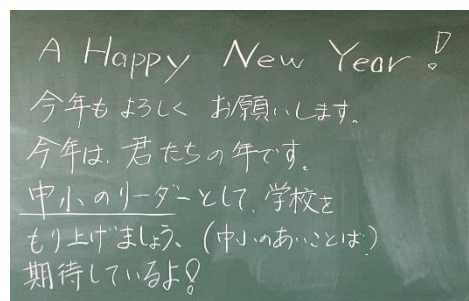 A Happy New Year!
今年もよろしく お願いします。
今年は、君たちの年です。
中小のリーダーとして、学校を
もり上げましょう、(中小のあいことば)
期待しているよ!